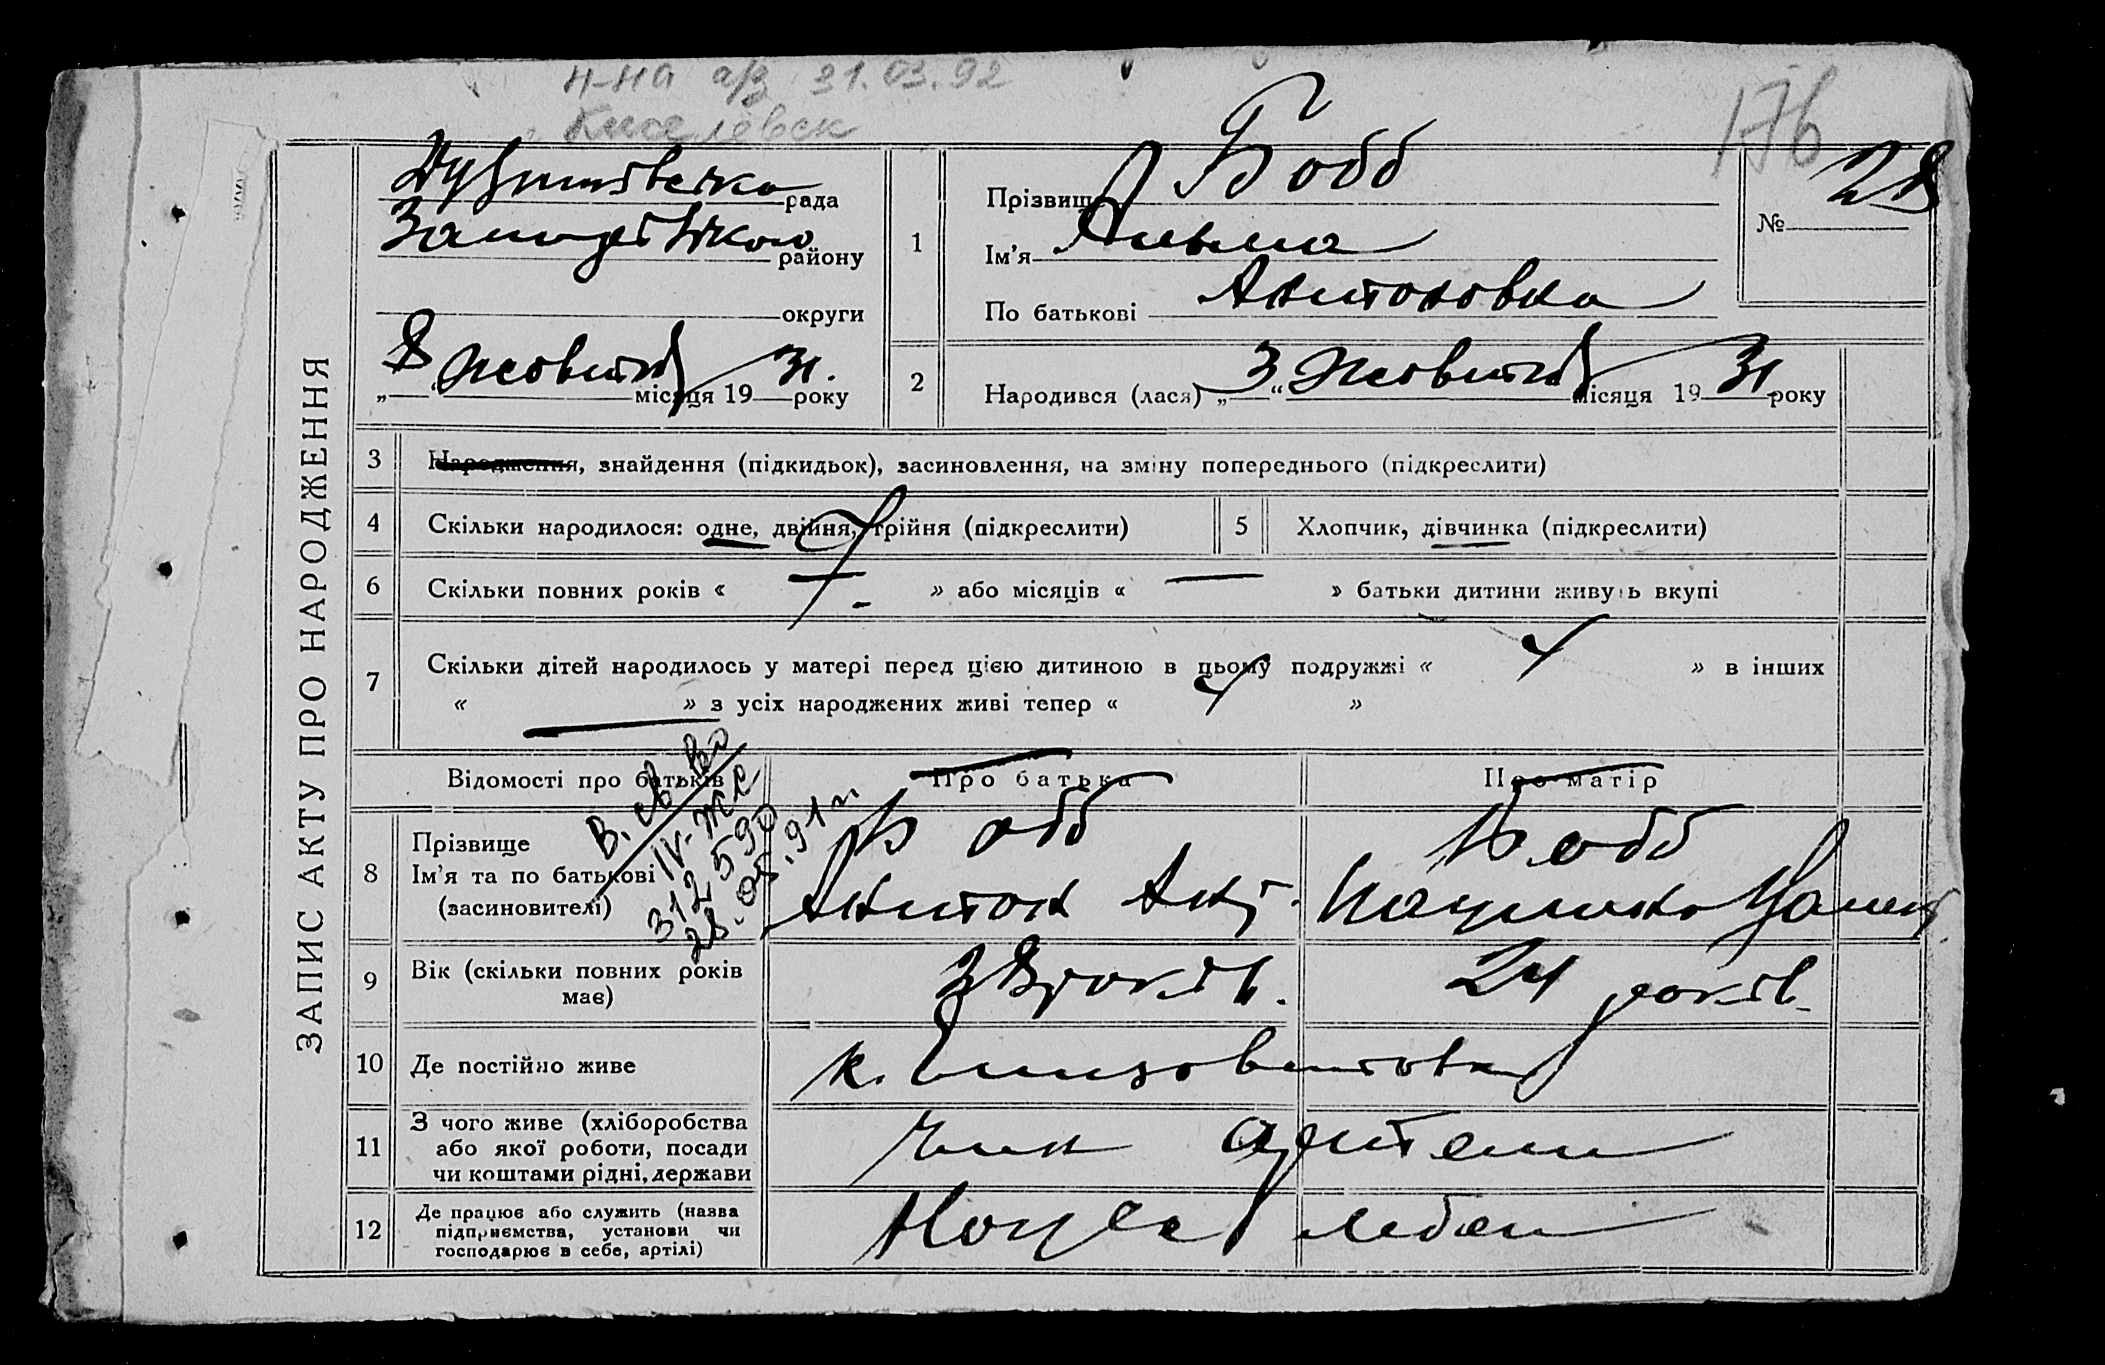 н-на а/з 31.03.92
Киселевск
176
ЗАПИС АКТУ ПРО НАРОДЖЕННЯ
рада
району
округи
„8“ Жовтня місяця 1931. року
1
Прізвище Бобб
Ім’я Альма
По батькові Антоновна
№ 28
2
Народився (лася) „3“ Жовтня місяця 1931 року
3
Народження, знайдення (підкидьок), засиновлення, на зміну попереднього (підкреслити)
4
Скільки народилося: одне, двійня, трійня (підкреслити)
5
Хлопчик, дівчинка (підкреслити)
6
Скільки повних років « 7. » або місяців « — » батьки дитини живуть вкупі
7
Скільки дітей народилось у матері перед цією дитиною в цьому подружжі « 4 » в інших
« — » з усіх народжених живі тепер « 4 »
Відомості про батьків
Про батька
Про матір
IV-ЖС
312590
28.05.91
8
Прізвище
Ім’я та по батькові
(засиновителі)
Бобб
Антон Ант.
Бобб
9
Вік (скільки повних років
має)
38 років.
24 років
10
Де постійно живе
к. Елизоветовка
11
З чого живе (хліборобства
або якої роботи, посади
чи коштами рідні, держави
член артели
12
Де працює або служить (назва
підприємства, установи чи
господарює в себе, артілі)